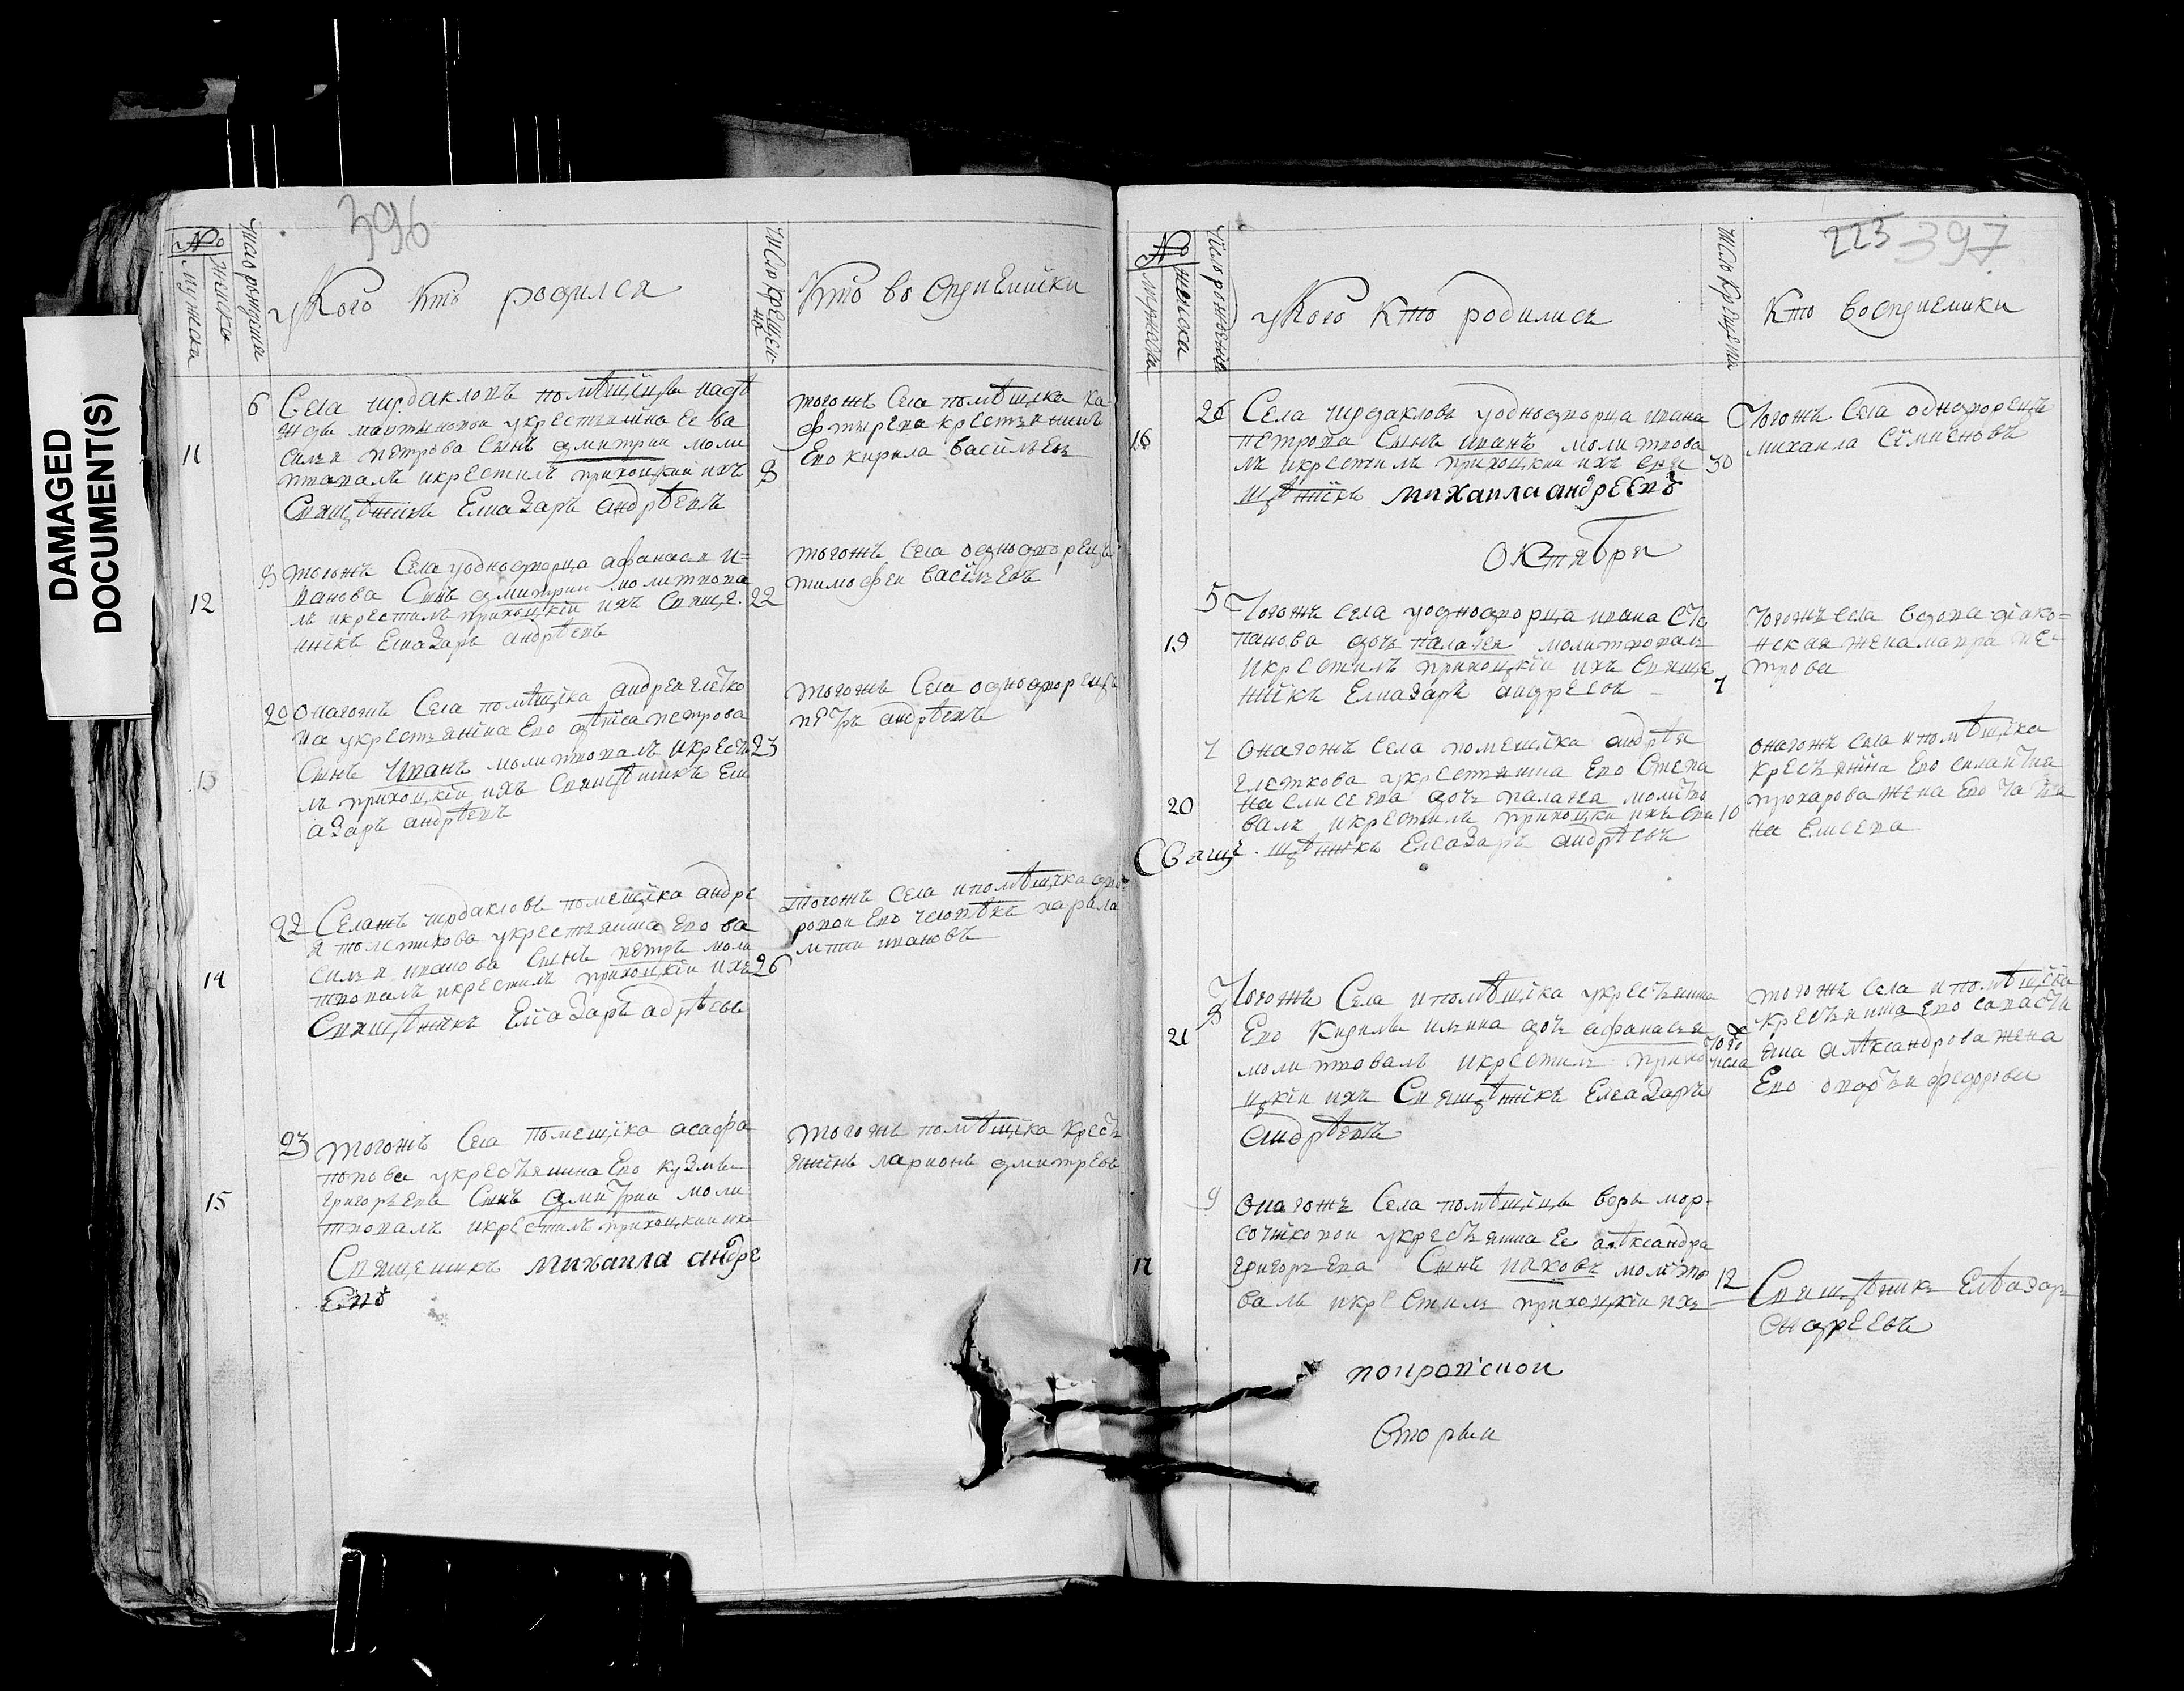 DAMAGED
DOCUMENT(S)
396
№
мужеска
женско
число рождения
у Кого кто родился
число крещен-
нѣ
Кто восприемники
11
6
Села чирдаклопъ помѣщицы надѣ
жды мартыновои у крестьянина ее ва
силья петрова сынъ дмитрии моли
тповалъ и крестилъ приходцкии ихъ
8
Священникъ Елиазаръ андрѣевъ
тогожъ села помѣщика ка
крестьянинъ
Ево кирила васильевъ
12
8
тогожъ села у однодворца афанасья и=
ванова сынъ дмитрии молитвова
лъ и крестилъ приходцкіи ихъ свяще
22
нникъ Елиазаръ андрѣевъ
тогожъ села однодворецъ
тимофеи васильевъ
13
20
Онагожъ села помѣщика андрея глѣтко
ва у крестьянина Ево дѣниса петрова
сынъ иванъ молитвовалъ и крести
23
лъ приходцкіи ихъ священникъ Ели
азаръ андрѣевъ
тогожъ села однодворецъ
пѣтръ андрѣевъ
14
22
Селажъ чирдакловъ помещика андре
я толстикова у крестьянина Ево ва
силья иванова сынъ петръ моли
тповалъ и крестилъ приходцкіи ихъ
26
Священникъ Елиазаръ адрѣевъ
тогожъ села и помѣщика дво
ровои Ево человѣкъ харла
мпии ивановъ
15
23
тогожъ села помещика асафа
попова у крестьянина Ево кузмы
григорьева сынъ дмитрии моли
тповалъ и крестилъ приходцкии ихъ
Священникъ михаила андре
евъ
тогожъ помѣщика кресть
янинъ ларионъ дмитревъ
223 397
№
мужеска
женска
число рождения
у Кого кто родились
число крещения
Кто восприемники
16
26
Села чирдакловъ у однодворца ивана
петрова сынъ иванъ молитвова
лъ и крестилъ приходцкии ихъ свя
30
щенникъ михаила андреевъ
Тогожъ села однодворецъ
михаила семионовъ
октября
19
5
Тогожъ села у однодворца ивана сте
панова дочь палагея молитвовалъ
и крестилъ приходцкіи ихъ свяще
нникъ Елиазаръ андреевъ
7
Тогожъ села вдова дьяко=
нская жена мавра пе
трова
20
7
онагожъ села помещика андрѣя
глеткова у крестьянина Ево степа
на елисеева дочь палагея молитво
валъ и крестилъ приходцкии ихъ свя
10
Свящ щенникъ Елеазаръ андрѣевъ
онагожъ села и помѣщика
крестьянина Ево силантиа
прохарова жена Ево татиа
на Елисева
21
8
Тогожъ села и помѣщика у крестьянина
Ево кирилы ильина дочь афанасья
молитвовалъ и крестилъ прихо
того
числа
цкіи ихъ Священникъ Елеазаръ
андрѣевъ
тогожъ села и помѣщика
крестьянина Ево савастьи
яна алѣксандрова жена
Ево федорова
17
9
онагожъ села помѣщицы веры мор-
у крестьянина Ее алѣксандра
григорьева сынъ иаковъ молитво
12
валъ и крестилъ приходцкіи ихъ
Священникъ Елѣазаръ
андреевъ
попрописной
второи